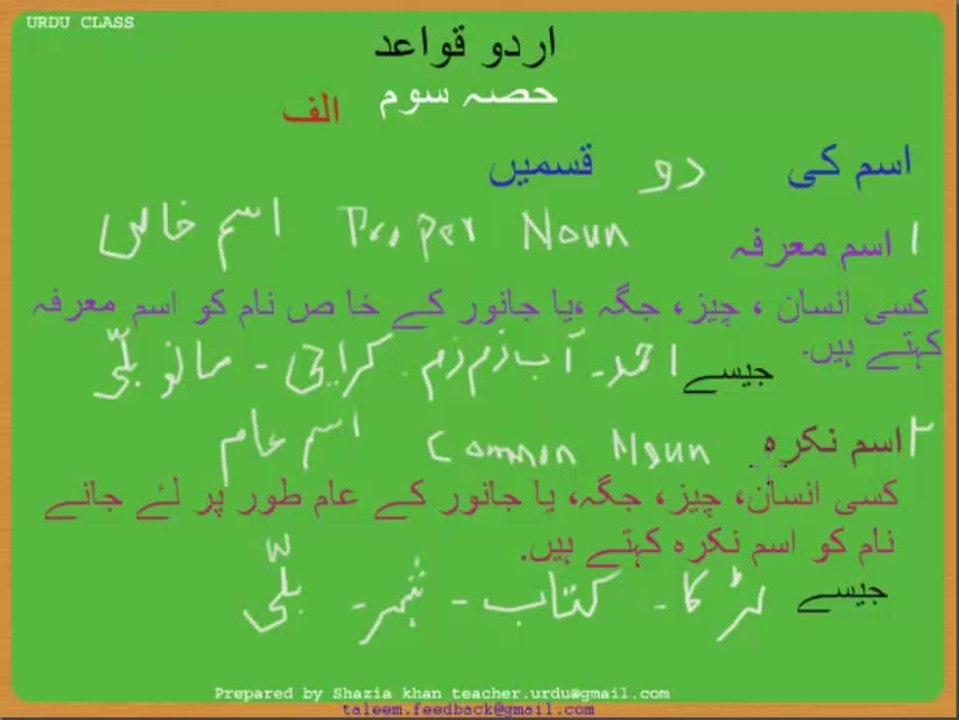 URDU CLASS
اردو قواعد
حصہ سوم الف
اسم کی دو قسمیں
۱ اسم معرفہ Proper Noun اسم خاص
کسی انسان ، چیز، جگہ ،یا جانور کے خا ص نام کو اسم معرفہ
کہتے ہیں۔
جیسے احمد۔ آب زم زم۔ کراچی - مانو بلّی
۲ اسم نکرہ Common Noun اسم عام
کسی انسان، چیز، جگہ، یا جانور کے عام طور پر لۓ جانے
نام کو اسم نکرہ کہتے ہیں۔
جیسے لڑکا۔ کتاب - شہر - بلّی
Prepared by Shazia khan teacher.urdu@gmail.com
taleem.feedback@gmail.com